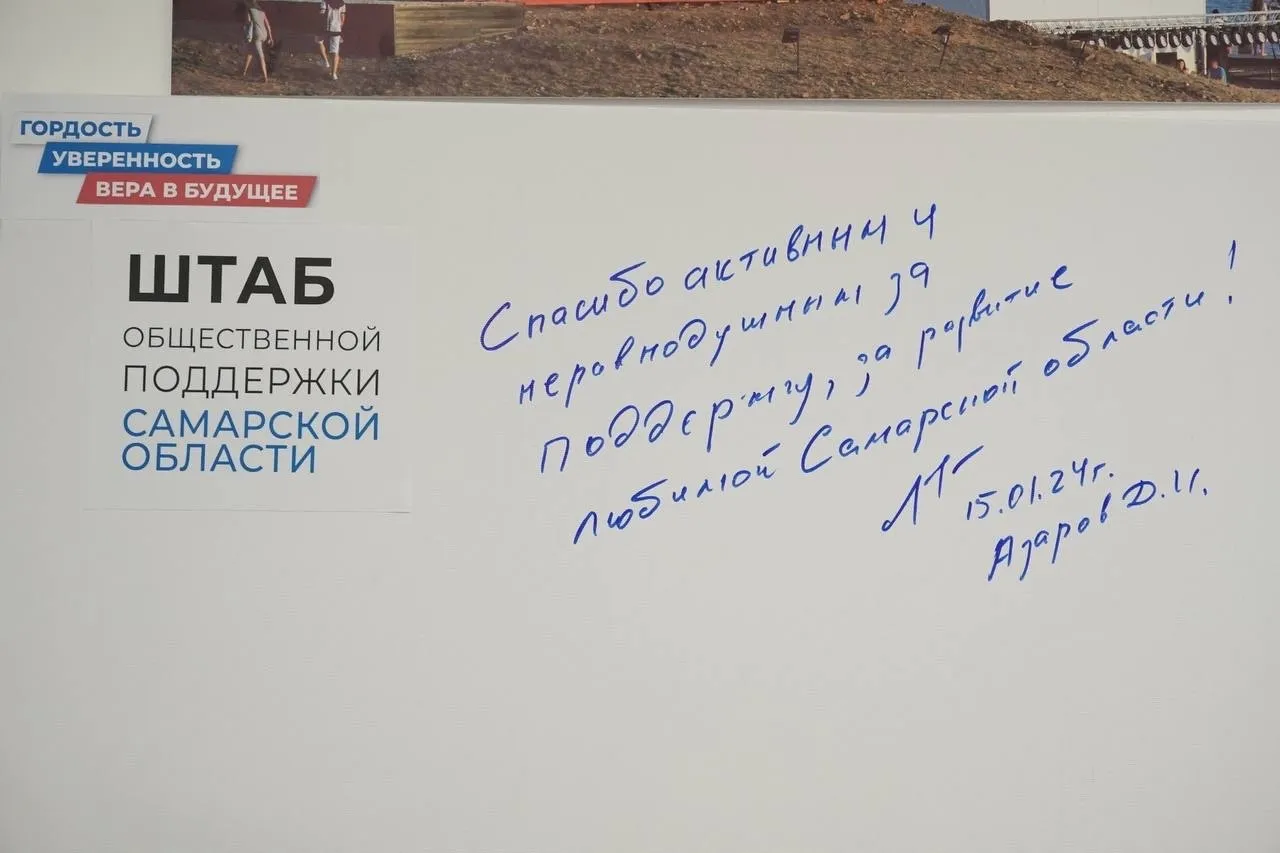 ГОРДОСТЬ
УВЕРЕННОСТЬ
ВЕРА В БУДУЩЕЕ
ШТАБ
ОБЩЕСТВЕННОЙ
ПОДДЕРЖКИ
САМАРСКОЙ
ОБЛАСТИ
Спасибо активным и
неравнодушным за
поддержку, за развитие
любимой Самарской области!
15.01.24г.
Азаров Д.И.